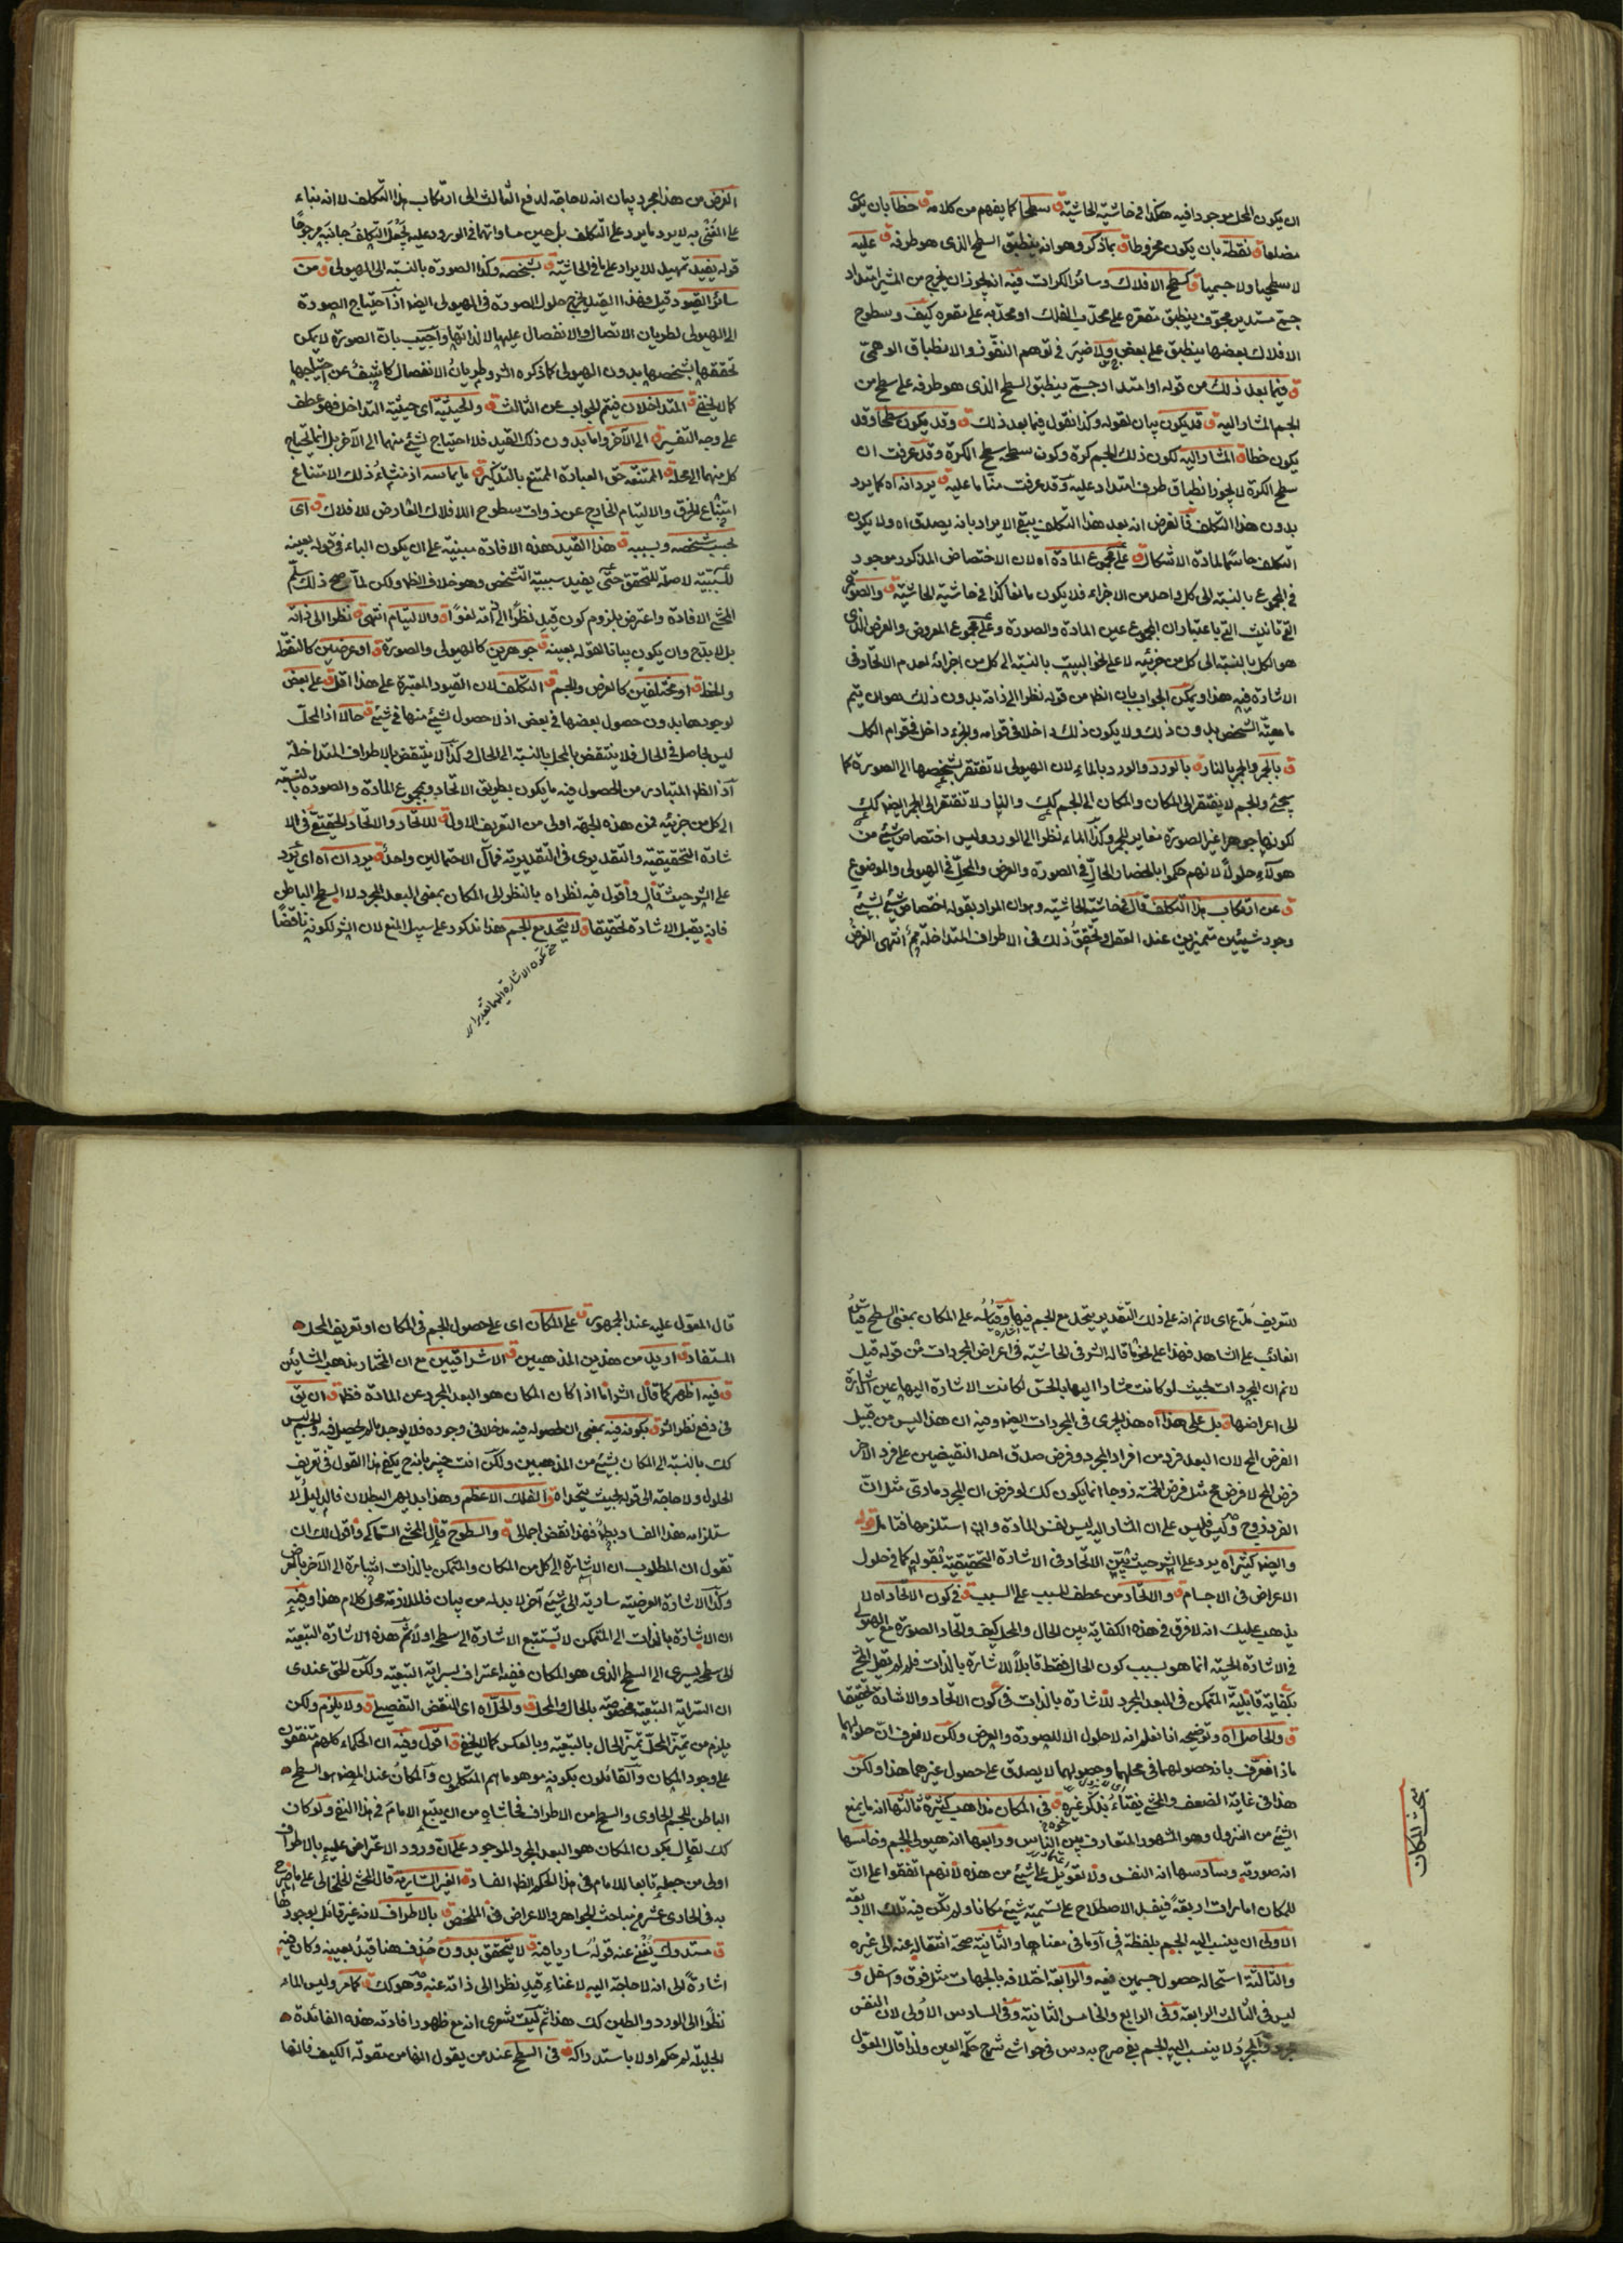 ان يكون المحل موجودا فيه هكذا في حاشية الحاشية ق سطحا كما يفهم من كلامه ق خطا بان يكون
مضلعا ق نقطة بان يكون مخروطا ق بما ذكر وهو انه ينطبق السطح الذى هو طرفه ق عليه
لا سطحيا ولا جسميا ق كسطح الافلاك وسائر الكرات فيه انه يجوز ان يخرج من المشير امتداد
جسمى مستدير مجوف ينطبق مقعره على محدب الفلك او محدبه على مقعره كيف وسطوح
الافلاك بعضها ينطبق على بعض ولا ضير في توهم النفوذ والانطباق الوهمى
ق فيما بعد ذلك من قوله او امتداد جسمى ينطبق السطح الذى هو طرفه على سطح من
الجسم المشار اليه ق قد يكون بيان لقوله وكذا نقول فيما بعد ذلك ق وقد يكون سطحا وقد
يكون خطا ق المشار اليه ككون ذلك الجسم كرة وكون سطحه سطح الكرة وقد عرفت ان
سطح الكرة لا يجوز انطباق طرف امتداد عليه وقد عرفت منا ما عليه ق يرد انه اه كما يرد
بدون هذا التكلف فالغرض انه بعد هذا التكلف يبقى الايراد بانه يصدق اه ولا يكون
التكلف حاسما لمادة الاشكال ق على مجموع المادة اه لان الاختصاص المذكور موجود
في المجموع بالنسبة الى كل واحد من الاجزاء فلا يكون مانعا كذا في حاشية الحاشية ق والصورة
التى تانيث التى باعتبار ان المجموع عين المادة والصورة وعلى مجموع المعروض والعرض الذى
هو الكل بالنسبة الى كل من جزئيه لا على نحو البيت بالنسبة الى كل من اجزائه لعدم الاتحاد في
الاشارة فيه هذا ويمكن الجواب بان الظ من قوله نظرا الى ذاته بدون ذلك هو ان يتم
ماهية الشخص بدون ذلك ولا يكون ذلك داخلا في قوامه والجزء داخل في قوام الكل
ق بالجمر والجمر بالنار ق بالورد والورد بالماء لان الهيولى لا تفتقر بشخصها الى الصورة كما
يجئ والجسم لا يفتقر الى المكان والمكان الى الجسم كك والنار لا تفتقر الى الجمر ايضا كك
لكونها جوهرا غير الصورة مغاير للجمر وكذا الماء نظرا الى الورد وليس اختصاص شئ من
هؤلاء حلولا لانهم حكموا بانحصار الحال في الصورة والعرض والمحل في الهيولى والموضوع
ق عن ارتكاب هذا التكلف قال في حاشية الحاشية وهو ان المراد بقوله اختصاص شئ بشئ
وجود شيئين متميزين عند العقل وتحقق ذلك في الاطراف المتداخلة مم انتهى الغرض
الغرض من هذا مجرد بيان انه لا حاجة لدفع الثالث الى ارتكاب هذا التكلف لا انه بناء
قوله يفيد تمهيد للايراد على ما في الحاشية ق بشخصه وكذا الصورة بالنسبة الى الهيولى ق من
سائر القيود قيل وبهذا القيد يخرج حلول الصورة في الهيولى ايضا اذ احتياج الصورة
الى الهيولى لطريان الاتصال والانفصال عليها لا لذاتها واجيب بان الصورة لا يمكن
تحققها بشخصها بدون الهيولى كما ذكره الش وطريان الانفصال كاشف عن احتياجها
كما لا يخفى ق المتداخلان فيتم الجواب عن الثالث ق والحيثية اى حيثية التداخل فهو عطف
على وجه التفسير ق الى الآخر واما بدون ذلك القيد فلا احتياج لشئ منهما الى الآخر بل انما يحتاج
كل منهما الى محله ق الممتنعة حق العبارة الممتنع بالتذكير ق ما يماسه اذ منشاء ذلك الامتناع
امتناع الخرق والالتيام الخارج عن ذوات سطوح الافلاك العارض للافلاك ق اى
بحسب تشخصه وبسببه ق هذا القيد هذه الافادة مبنية على ان يكون الباء في قوله بعينه
للسببية لا صلة للتحقق حتى يفيد سببية التشخص وهو خلاف الظ ولكن لما صح ذلك سلم
المحشى الافادة واعترض بلزوم كون قيد نظرا الى ذاته لغوا ق والالتيام انتهى ق نظرا الى ذاته
بل لا بد وان يكون بيانا لقوله بعينه ق جوهرين كالهيولى والصورة ق او عرضين كالنقطة
والخط ق او مختلفين كالعرض والجسم ق التكلف لان القيود المعتبرة على هذا اقل ق على بعض
لوجودها بدون حصول بعضها في بعض اذ لا حصول لشئ منها في شئ ق حالا اذ المحل
ليس بحاصل في الحال فلا ينتقض بالمحل بالنسبة الى الحال وكذا لا ينتقض بالاطراف المتداخلة
اذ الظ المتبادر من الحصول فيه ما يكون بطريق الاتحاد ومجموع المادة والصورة بالنسبة
الى كل من جزئيه فمن هذه الجهة اولى من التعريف الاول ق للاتحاد والاتحاد الحقيقى في الا
شارة التحقيقية والتقديرى في التقديرية فمآل الاحتمالين واحد ق يرد ان اه اى يرد
على الش حيث قال واقول فيه نظر اه بالنظر الى المكان بمعنى البعد المجرد لا السطح الباطن
فانه يقبل الاشارة تحقيقا ق لا يتحد مع الجسم هذا مذكور على سبيل المنع لان الش لكونه ناقضا
للتعريف مدع اى لانم انه على ذلك التقدير يتحد مع الجسم فيها وقياسه على المكان بمعنى السطح قياس
الغائب على الشاهد فهذا على نحو ما قاله الش في الحاشية في اعراض المجردات من قوله قيل
لانم ان المجردات بحيث لو كانت مشارا اليها بالحس لكانت الاشارة اليها عين الاشارة
الى اعراضها ق بل على هذا اه هذا يجرى في المجردات ايضا وفيه ان هذا ليس من قبيل
الفرض المح لان البعد فرد من افراد المجرد وفرض صدق احد النقيضين على فرد الآخر
فرض المح لا فرض مح مثل فرض الخمسة زوجا انما يكون كك لو فرض ان المجرد مادى مثل ان
الفرد زوج وليس فليس على ان المشار اليه ليس نفس المادة وان استلزمها فتامل قوله
وايضا كثيرا اه يرد على الش حيث بين الاتحاد في الاشارة التحقيقية بقوله كما في حلول
الاعراض في الاجسام ق والاتحاد من عطف المسبب على السبب ق في كون الاتحاد اه لا
يذهب عليك انه لا فرق في هذه الكفاية بين الحال والمحل كيف واتحاد الصورة مع الهيولى
في الاشارة الحسية انما هو بسبب كون الحال فقط قابلا للاشارة بالذات فلم لم يقل المحشى
بكفاية قابلية المتمكن في البعد المجرد للاشارة بالذات في كون الاتحاد والاشارة تحقيقا
ق والحاصل اه وتوضيحه انا نعلم انه لا حلول الا للصورة والعرض ولكن لا نعرف ان حلولهما
ماذا فعرف بانه حصولهما في محلهما وحصولهما لا يصدق على حصول غيرهما هذا ولكن
هذا في غاية الضعف والمحشى يفتاء بذكر غيره ق في المكان مذاهب كثيرة ثالثها انه ما يمنع
الشئ من النزول وهو المشهور المتعارف بين الناس ورابعها انه هيولى الجسم وخامسها
انه صورته وسادسها انه النفس ولا تعويل على شئ من هذه لانهم اتفقوا على ان
للمكان امارات اربعة فيفيد الاصطلاح على تسمية شئ مكانا ولم يكن فيه تلك الاربعة
الاولى ان ينسب اليه الجسم بلفظة في او ما في معناها والثانية صحة انتقاله عنه الى غيره
والثالثة استحالة حصول جسمين فيه والرابعة اختلافه بالجهات مثل فوق واسفل و
ليس في الثالث الرابعة وفي الرابع والخامس الثانية وفي السادس الاولى لان النفس
مجرد والمجرد لا ينسب اليه الجسم بفى صرح به دس في حواشى شرح حكمة العين ولذا قال المعول
بحث المكان
قال المعول عليه عند الجمهور ق على المكان اى على حصول الجسم في المكان او تعريف المحل
المستفاد ق اريد من هذين المذهبين ق الاشراقيين مع ان المختار مذهب المشائين
ق فيه اظهر كما قال الش اما اذا كان المكان هو البعد المجرد عن المادة فظ ق ان يق
في دفع نظر الش ق بكونه فيه بمعنى ان لحصوله فيه مدخلا في وجوده فلا يوجد ما لم يحصل فيه والجسم ليس
كك بالنسبة الى المكان بشئ من المذهبين ولكن انت خبير بانه ح يكفى هذا القول في تعريف
الحلول ولا حاجة الى قوله بحيث يتحد اه ق الفلك الاعظم وهذا بديهى البطلان فالدليل لا
ستلزامه هذا الفساد بط فهذا نقض اجمالى ق والسطوح قال المحشى السماكى واقول لك ان
تقول ان المطلوب ان الاشارة الى كل من المكان والمتمكن بالذات اشارة الى الآخر بالعرض
وكذا الاشارة العرضية سارية الى شئ آخر لا بد له من بيان فللملازمة محل كلام هذا وفيه
ان الاشارة بالذات الى المتمكن لا تستتبع الاشارة الى سطحه اولا ثم هذه الاشارة التبعية
الى سطحه يسرى الى السطح الذى هو المكان ففيه اعتراف بسراية التبعية ولكن الحق عندى
ان السراية التبعية مخصوصة بالحال والمحل ق والحل اه اى النقض التفصيلى ق ولا يلزم ولكن
يلزم من تميز المحل تميز الحال بالتبعية وبالعكس كما لا يخفى ق اقول وفيه ان الحكماء كلهم متفقون
على وجود المكان والقائلون بكونه موهوما هم المتكلمون والمكان عند المص هو السطح
الباطن للجسم الحاوى والسطح من الاطراف فحاشاه من ان يتبع الامام في هذا النفى ولو كان
كك لقال بكون المكان هو البعد المجرد الموجود على ان ورود الاعتراض عليه بالاطراف
اولى من جعله تابعا للامام في هذا الحكم الظ الفساد ق الغير السارية قال المحشى الخلخالى على ما صرح
به في الحادى عشر من مباحث الجواهر والاعراض في الملخص ق بالاطراف لانه غير قائل بوجودها
ق مستدرك يغنى عنه قوله ساريا فيه ق لا يتحقق بدون حذف هنا قيد بعينه وكان فيه
اشارة الى انه لا حاجة اليه لاغناء قيد نظرا الى ذاته عنه وهو كك ق كما مر وليس الماء
نظرا الى الورد والطين كك هذا ثم ليت شعرى انه مع ظهور افادته هذه الفائدة
الجليلة لم حكم اولا باستدراكه ق في السطح عند من يقول انها من مقولة الكيف فانها